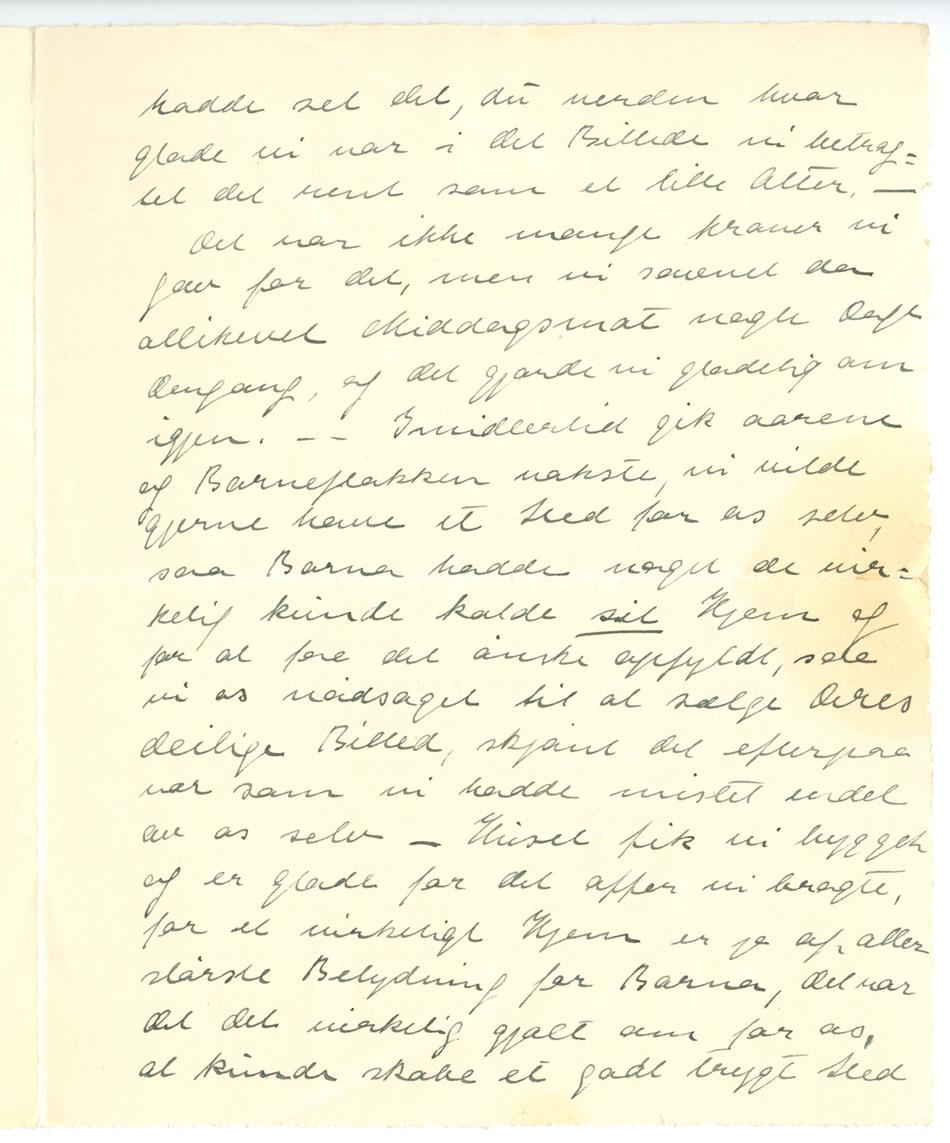 hadde set det, du verden hvor
glade vi var i det Billede vi betrag=
tet det rent som et lille Alter. —
Det var ikke mange kroner vi
gav for det, men vi savnet da
allikevel Middagsmat nogle Dage
Dengang, og det gjorde vi gladelig om
igjen. – – Imidlertid gik aarene
og Barneflokken vokste, vi vilde
gjerne have et Sted for os selv,
saa Barna hadde noget de vir=
kelig kunde kalde sit Hjem og
for at faa det ønske opfyldt, saa
vi os nødsaget til at sælge Deres
deilige Billed, skjønt det efterpaa
var som vi hadde mistet endel
av os selv — Huset fik vi bygget
og er glade for det offer vi bragte,
for et virkeligt Hjem er jo af aller
største Betydning for Barna, det var
det det virkelig gjalt om for os,
at kunde skabe et godt trygt Sted